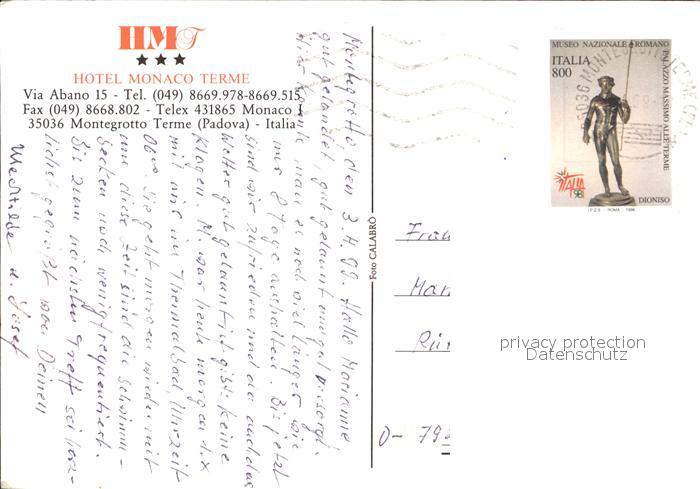 HMT
★★★
HOTEL MONACO TERME
Via Abano 15 - Tel. (049) 8669.978-8669.515
Fax (049) 8668.802 - Telex 431865 Monaco I
35036 Montegrotto Terme (Padova) - Italia
Montegrotto den 3.4.99. Hallo Marianne
gut gelandet, gut gelaunt und gut versorgt.
Hier könnte man es noch viel länger wie
nur 8 Tage aushalten. Bis jetzt
sind wir zufrieden und da auch das
Wetter gut gelaunt ist gibt's keine
Klagen. M. war heute morgen 1 x
mit mir im Thermalbad (Uhrzeit
Sie geht morgen wieder mit
um diese Zeit sind die Schwimm-
becken noch wenig frequentiert.
Bis zum nächsten Treff sei herz-
lichst gegrüßt von Deinen
Mechtilde u. Josef
Foto CALABRÒ
MUSEO NAZIONALE ROMANO
PALAZZO MASSIMO ALLE TERME
ITALIA
800
ITALIA 98
DIONISO
I.P.Z.S. - ROMA - 1998
35036 MONTEGROTTO TERME
Frau
Mar
D- 79
privacy protection
Datenschutz